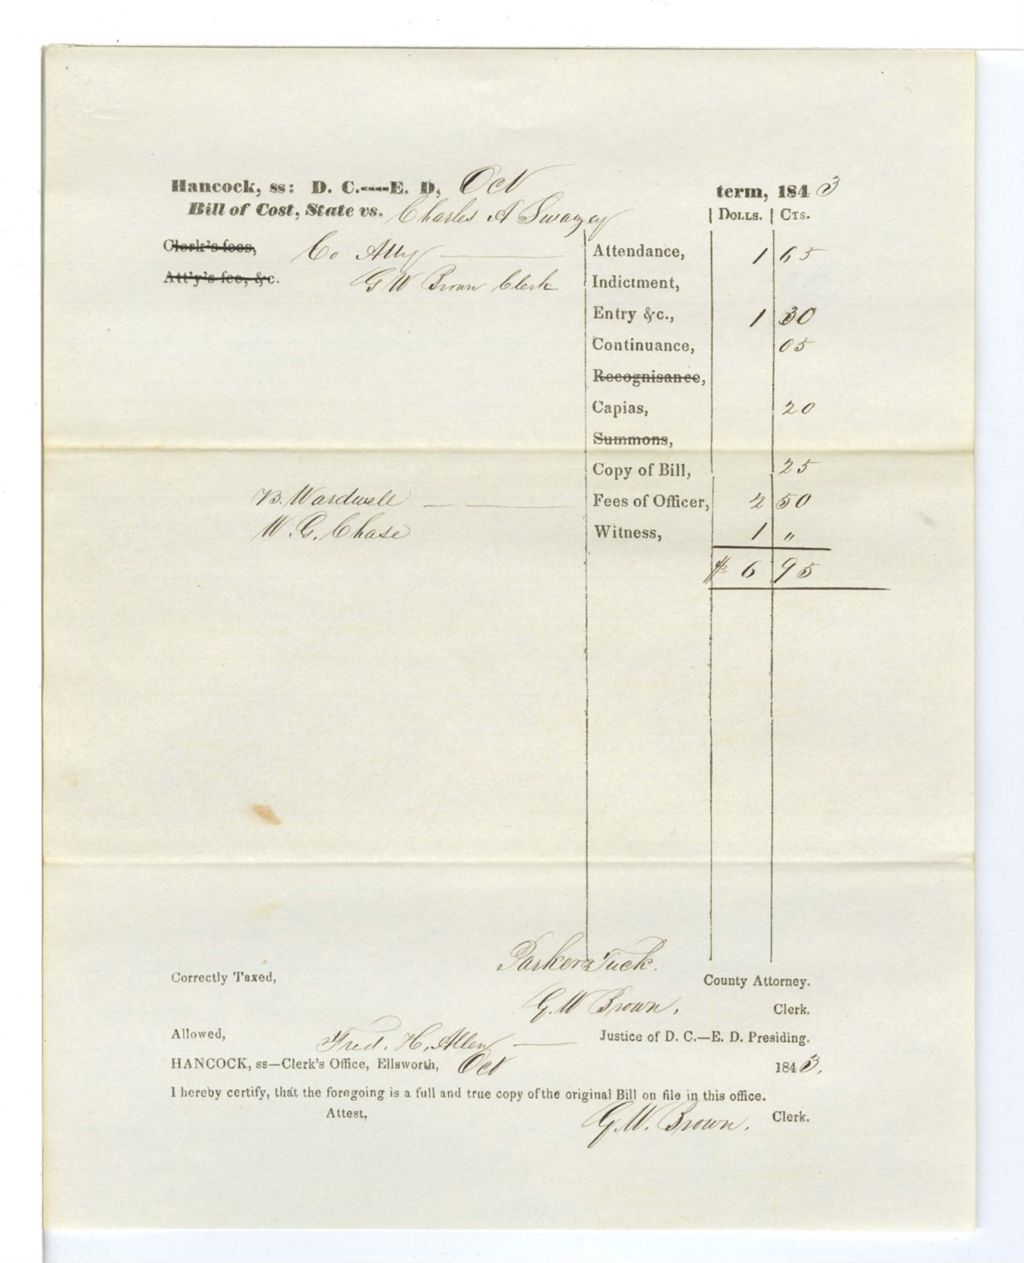 Hancock, ss: D. C.----E. D, Oct term, 1843
Bill of Cost, State vs. Charles A Swazey | Dolls. | Cts.
Clerk's fees, Co Atty Attendance, 1 65
Att'y's fee, &c. G W Brown Clerk Indictment,
Entry &c., 1 30
Continuance, 05
Recognisance,
Capias, 20
Summons,
Copy of Bill, 25
B. Wardwell Fees of Officer, 2 50
W. G. Chase Witness, 1 "
$ 6 95
Parker Tuck.
Correctly Taxed, County Attorney.
G. W Brown. Clerk.
Allowed, Fred. H. Allen Justice of D. C.—E. D. Presiding.
HANCOCK, ss—Clerk's Office, Ellsworth, Oct 1843.
I hereby certify, that the foregoing is a full and true copy of the original Bill on file in this office.
Attest, G. W. Brown. Clerk.